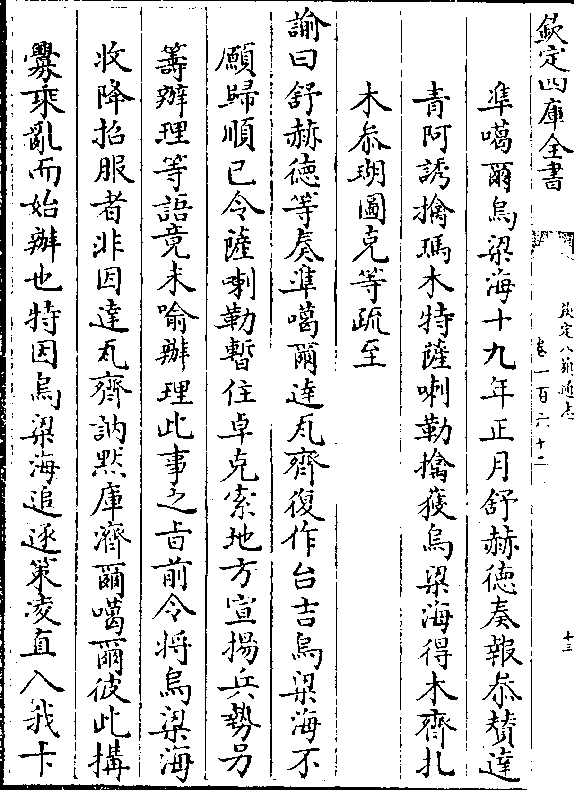 欽定四庫全書
欽定八旗通志
卷一百六十二
十三
準噶爾烏梁海十九年正月舒赫徳奏報叅賛達
青阿誘擒瑪木特薩喇勒擒獲烏梁海得木齊扎
木叅瑚圖克等疏至
諭曰舒赫徳等奏準噶爾達瓦齊復作台吉烏梁海不
願歸順已令薩喇勒暫住卓克索地方宣揚兵勢另
籌辦理等語竟未喻辦理此事之㫖前令將烏梁海
收降招服者非因達瓦齊訥黙庫濟爾噶爾彼此搆
釁乘亂而始辦也特因烏梁海追逐策凌直入我卡